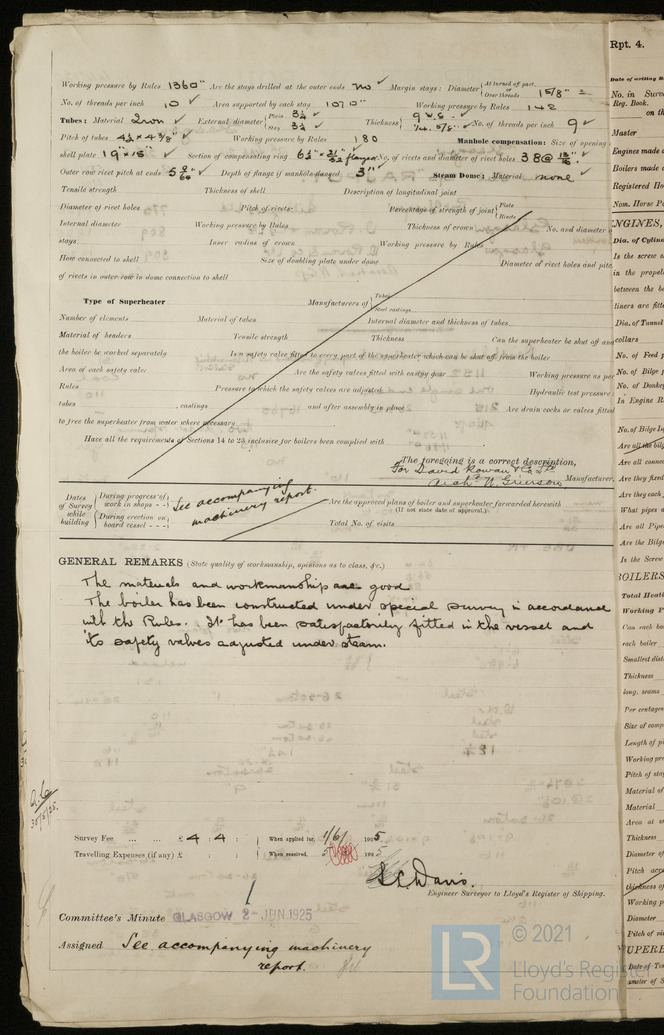 Working pressure by Rules 136 lbs Are the stays drilled at the outer ends No ✓ Margin stays: Diameter { At turned off part, or Over threads 1 5/8" =
No. of threads per inch 10 ✓ Area supported by each stay 107 □" Working pressure by Rules 142
Tubes: Material Iron ✓ External diameter { Plain 3¼ Stay 3¼ ✓ Thickness { 9 W.G. ✓ No. of threads per inch 9 ✓
Pitch of tubes 4½ × 4 3/8" ✓ Working pressure by Rules 180 Manhole compensation: Size of opening
shell plate 19" × 15" ✓ Section of compensating ring flanged No. of rivets and diameter of rivet holes 38 @ ✓
Outer row rivet pitch at ends ✓ Depth of flange if manhole flanged 3" ✓ Steam Dome: Material none ✓
Tensile strength Thickness of shell Description of longitudinal joint
Diameter of rivet holes Pitch of rivets Percentage of strength of joint { Plate Rivets
Internal diameter Working pressure by Rules Thickness of crown No. and diameter
stays Inner radius of crown Working pressure by Rules
How connected to shell Size of doubling plate under dome Diameter of rivet holes and pitc
of rivets in outer row in dome connection to shell
Type of Superheater Manufacturers of { Tubes Steel castings
Number of elements Material of tubes Internal diameter and thickness of tubes
Material of headers Tensile strength Thickness Can the superheater be shut off and
the boiler be worked separately Is a safety valve fitted to every part of the superheater which can be shut off from the boiler
Area of each safety valve Are the safety valves fitted with easing gear Working pressure as per
Rules Pressure to which the safety valves are adjusted Hydraulic test pressure:
tubes , castings and after assembly in place Are drain cocks or valves fitted
to free the superheater from water where necessary
Have all the requirements of Sections 14 to 23 inclusive for boilers been complied with
The foregoing is a correct description,
For David Rowan & Co Ltd
Archd W Grierson Manufacturer.
Dates of Survey while building { During progress of work in shops - - During erection on board vessel - - - See accompanying machinery report. Are the approved plans of boiler and superheater forwarded herewith (If not state date of approval.)
Total No. of visits
GENERAL REMARKS (State quality of workmanship, opinions as to class, &c.)
The materials and workmanship are good
The boiler has been constructed under special survey in accordance
with the Rules. It has been satisfactorily fitted in the vessel and
its safety valves adjusted under steam.
30/5/25.
Survey Fee ... ... £ 4 : 4 : When applied for, 1/6/ 1925
Travelling Expenses (if any) £ : : When received, 192
Davis.
Engineer Surveyor to Lloyd's Register of Shipping.
Committee's Minute GLASGOW 2 - JUN 1925
Assigned See accompanying machinery
report.
Rpt. 4.
Date of writing R
No. in Surve
Reg. Book.
on th
Master
Engines made a
Boilers made a
Registered Ho
Nom. Horse P
NGINES,
Dia. of Cylin
Is the screw s
in the propel
between the b
liners are fitt
Dia. of Tunnel
collars
No. of Feed p
No. of Bilge p
No. of Donkey
In Engine R
No. of Bilge In
Are all the bilg
Are all connec
Are they fixed
Are they each
What pipes a
Are all Pipe
Are the Bilge
Is the Screw
BOILERS
Total Heati
Working P
Can each bo
each boiler
Smallest dist
Thickness
long. seams
Per centages
Size of comp
Length of pi
Working pre
Pitch of stay
Material of
Material
Area at s
Thickness
Diameter of
Pitch acr
thickness of
Working p
Diameter
Pitch of riv
UPERH
Date of Tes
ameter of S
LR © 2021
Lloyd's Register
Foundation